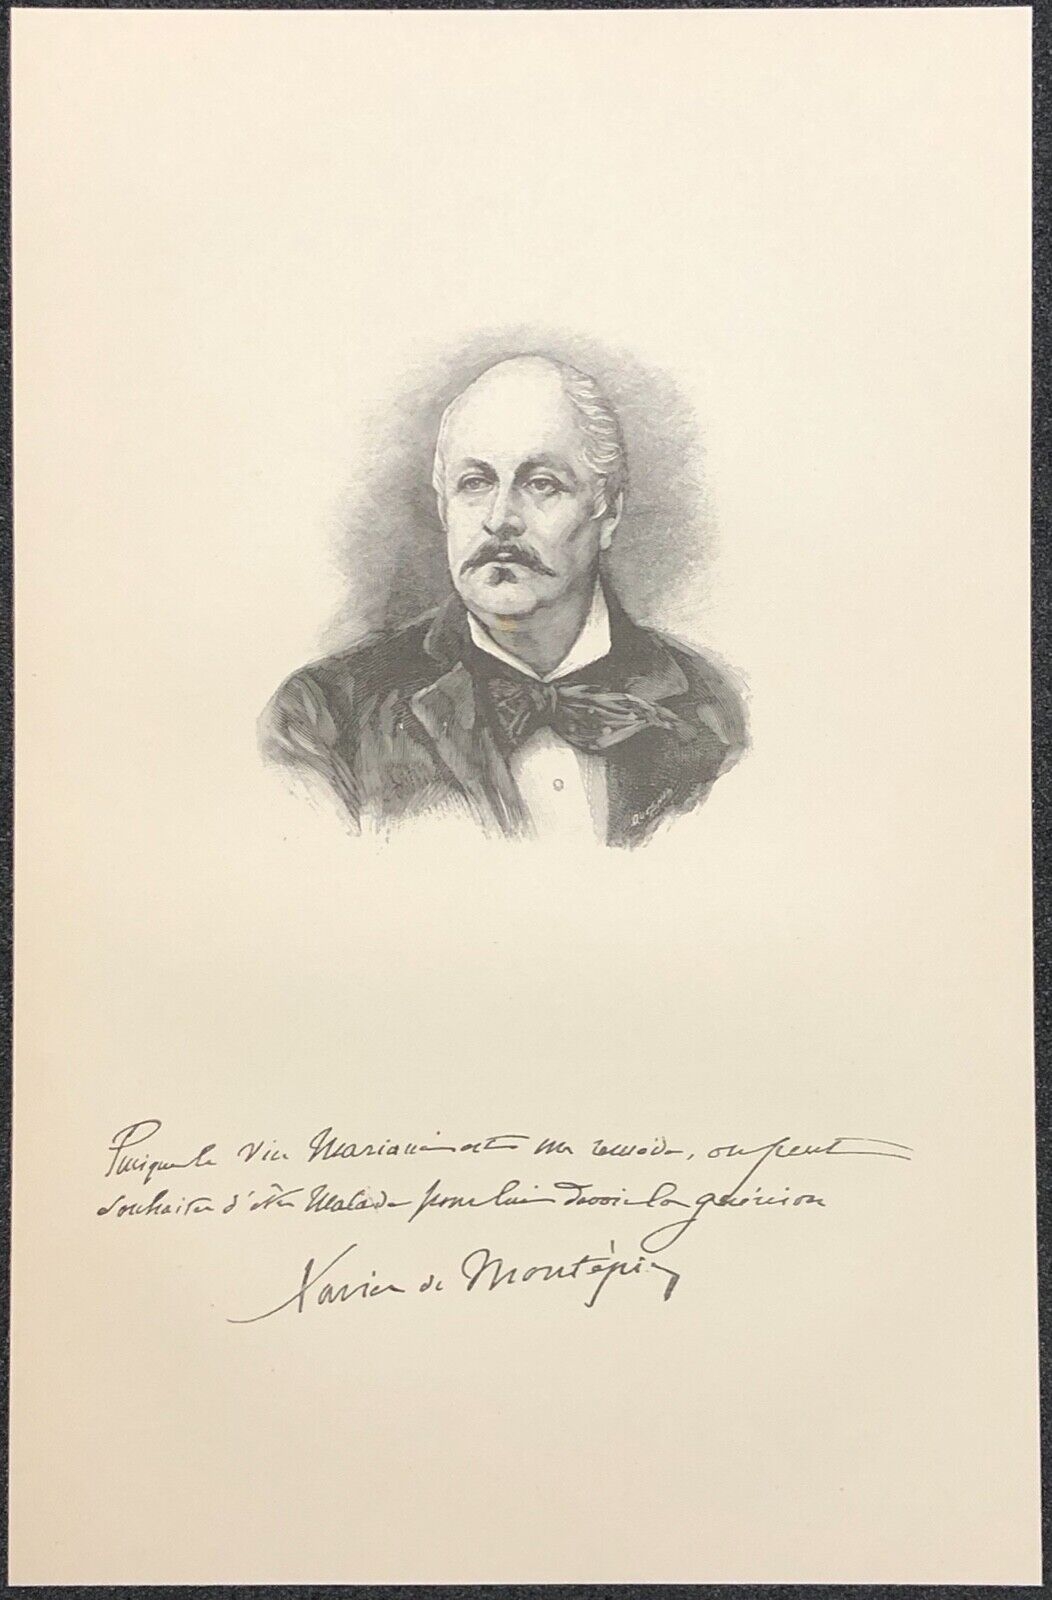 Puisque le Vin Mariani est un remède, on peut
souhaiter d'être Malade pour lui devoir la guérison
Xavier de Montépin